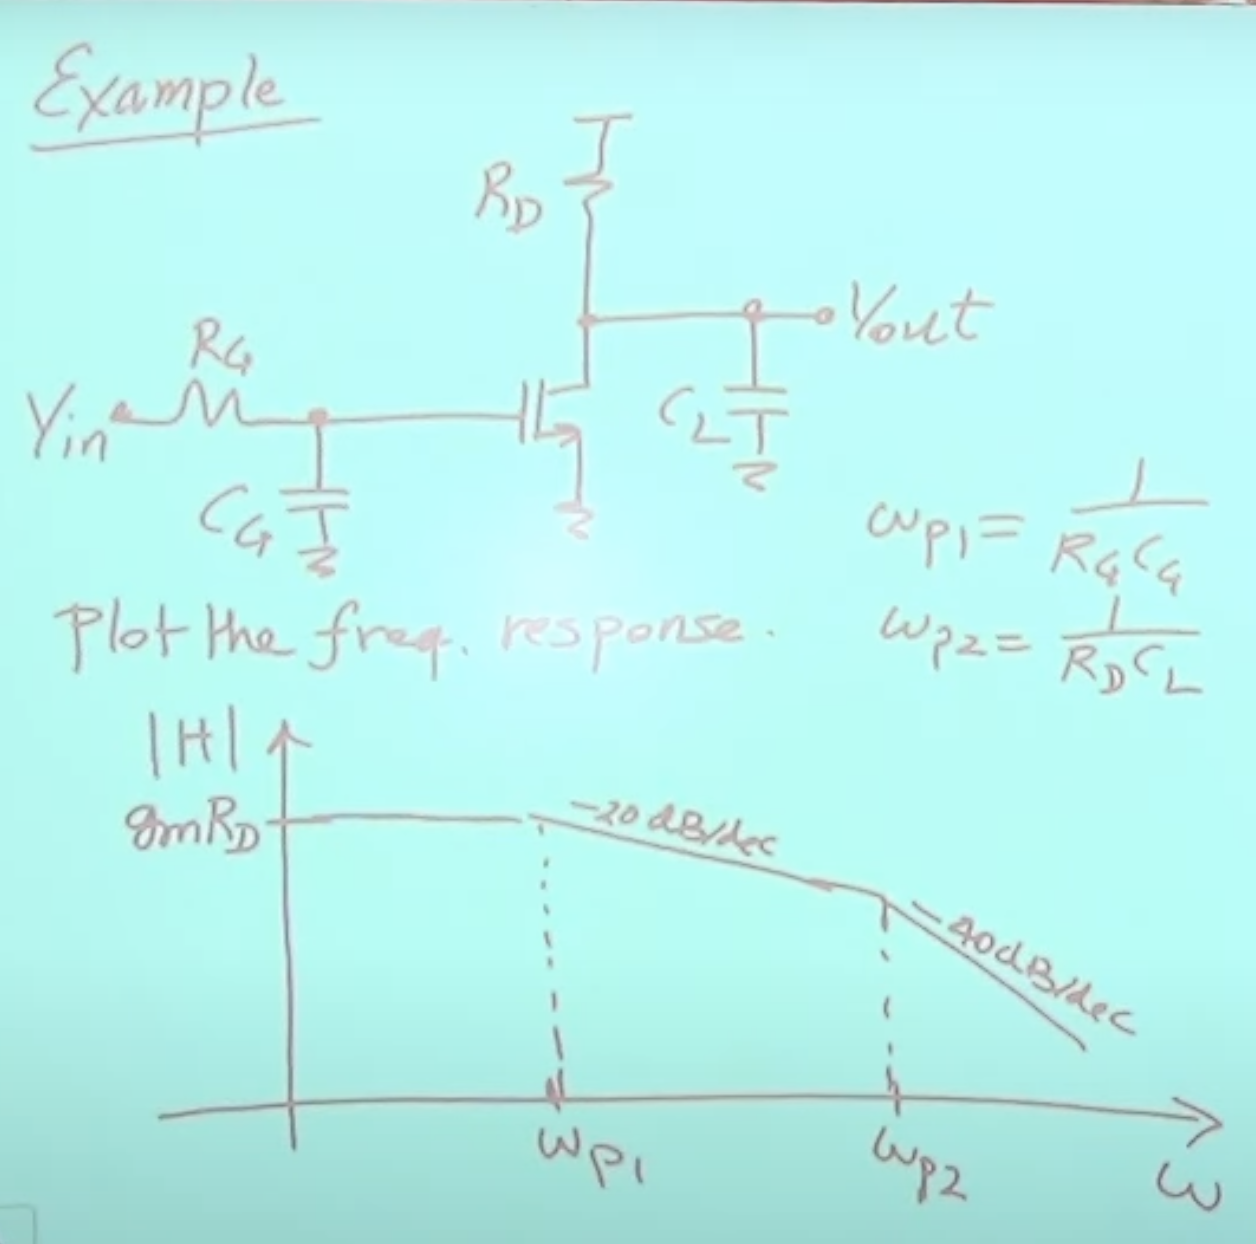 Example
R_D
Vout
R_G
Vin
C_L
C_G
ω_p1 = 1 / R_G C_G
Plot the freq. response.
ω_p2 = 1 / R_D C_L
|H|
gmR_D
-20 dB/dec
-40 dB/dec
ω_p1
ω_p2
ω